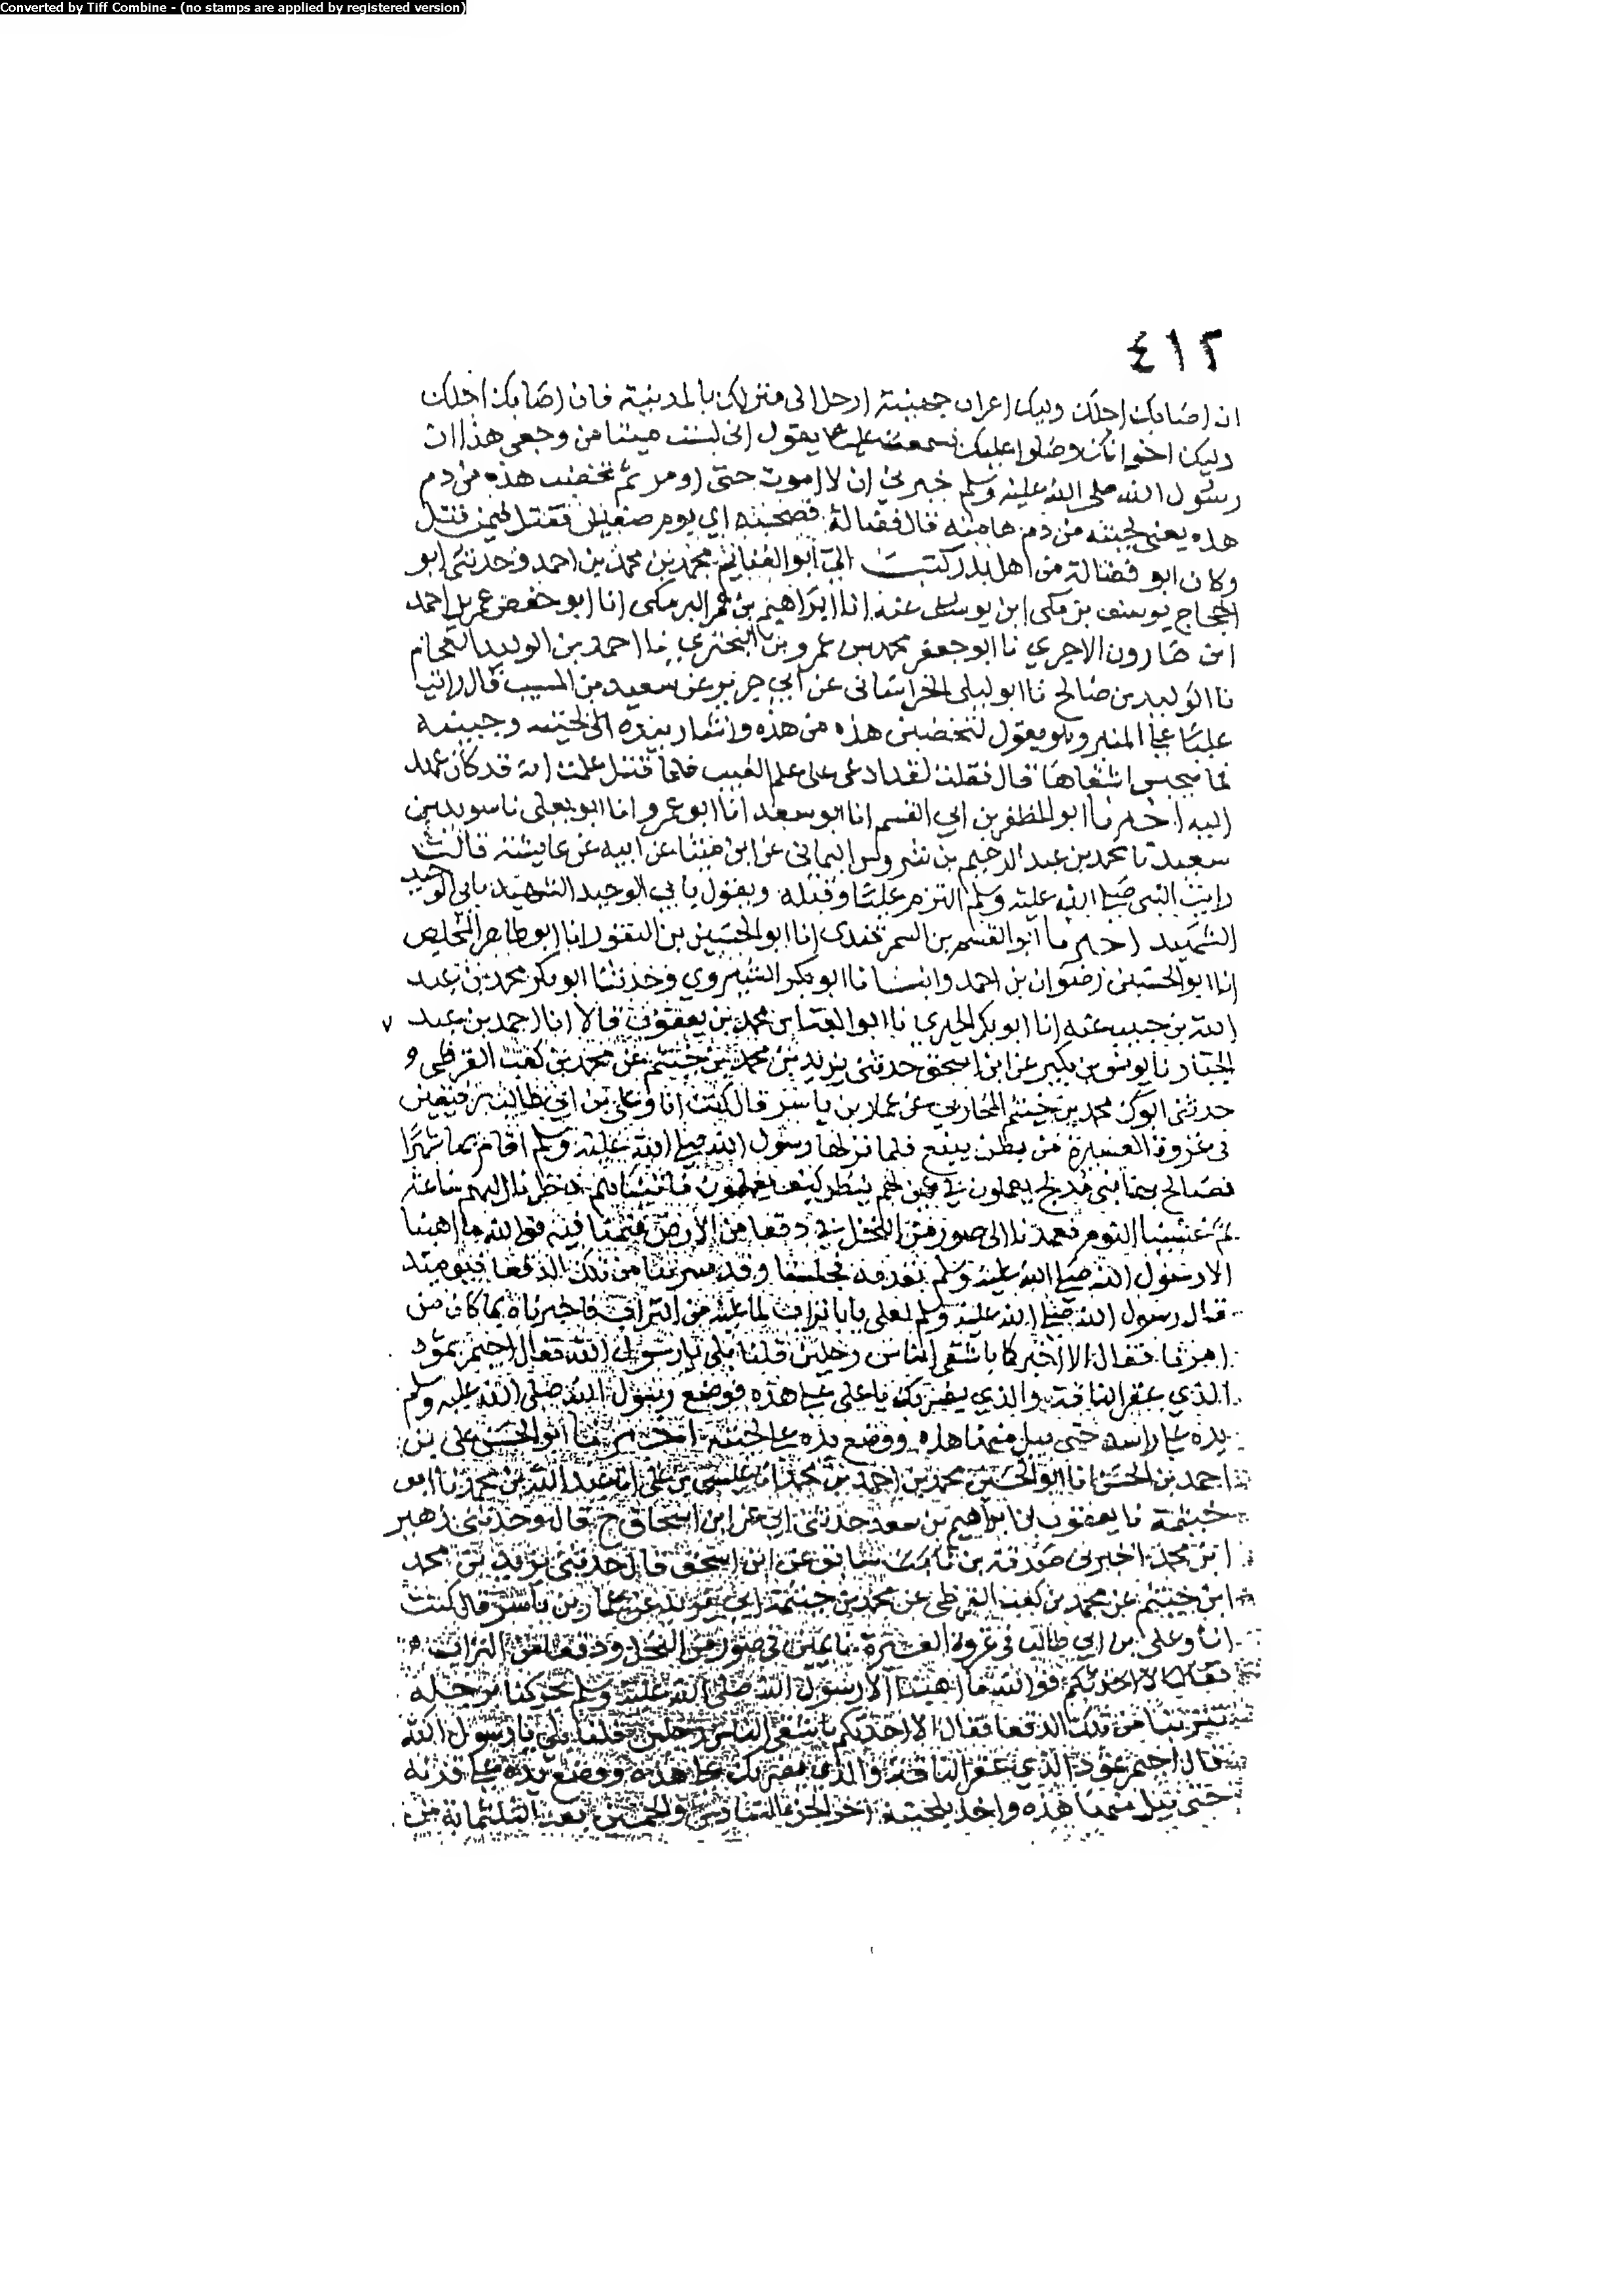 Converted by Tiff Combine - (no stamps are applied by registered version)
٤١٢
ان اصابك اجلك وليك اعراب جهينة ارحل الى منزلك بالمدينة فان اصابك اجلك
وليك اخوانك وصلوا عليك يقول انى لست ميتا من وجعى هذا ان
رسول الله صلى الله عليه وسلم خبرني ان لا اموت حتى اومر ثم تخضب هذه من دم
هذه يعنى لحيته من دم هامته قال فضالة فصحبه ابي يوم صفين فقتل فيمن قتل
وكان ابو فضالة من اهل بدر كتب الى ابو الغنايم محمد بن محمد بن احمد وحدثنى ابو
الحجاج يوسف بن مكى ابن يوسف عنه انا ابراهيم بن عمر البرمكى انا ابو حفص عمر بن احمد
ابن هارون الاجري نا ابو جعفر محمد بن عمرو بن البختري نا احمد بن الوليد الفحام
نا الوليد بن صالح نا ابو ليلى الخراسانى عن ابي جرير عن سعيد بن المسيب قال رايت
عليا على المنبر وهو يقول لتخضبن هذه من هذه واشار بيده الى لحيته وجبينه
فما يحبس اشقاها قال فقلت لقد ادعى على علم الغيب فلما قتل علمت انه قد كان عهد
اليه اخبرنا ابو المظفر بن ابي القسم انا ابو سعد انا ابو عمرو انا ابو يعلى نا سويد بن
سعيد نا محمد بن عبد الرحيم بن شروس اليمانى عن ابن مينا عن ابيه عن عايشة قالت
رايت النبى صلى الله عليه وسلم التزم عليا وقبله ويقول يابي الوحيد الشهيد يابي الوحيد
الشهيد اخبرنا ابو القسم بن السمرقندى انا ابو الحسين بن النقور انا ابو طاهر المخلص
انا ابو الحسين رضوان بن احمد وانبانا ابو بكر الشيروي وحدثنا ابو بكر محمد بن عبد
الله بن حبيب عنه انا ابو بكر الحيري نا ابو العباس محمد بن يعقوب قالا انا احمد بن عبد
الجبار نا يونس بن بكير عن ابن اسحق حدثنى يزيد بن محمد بن خيثم عن محمد بن كعب القرظى و
حدثنى ابوك محمد بن خيثم المحاربي عن عمار بن ياسر قال كنت انا وعلى بن ابي طالب رفيقين
فى غزوة العشيرة من بطن ينبع فلما نزلها رسول الله صلى الله عليه وسلم اقام بها شهرا
فصالح بها بنى مدلج
ثم غشينا النوم فعمدنا الى صور من النخل في دقعا من الارض فنمنا فيه فوالله ما اهبنا
الا رسول الله صلى الله عليه وسلم بقدمه فجلسنا وقد تتربنا من تلك الدقعا فيومئذ
قال رسول الله صلى الله عليه وسلم لعلى يا با تراب لما عليه من التراب فاخبرناه بما كان من
امرنا فقال الا اخبركما باشقى الناس رجلين قلنا بلى يا رسول الله فقال احيمر ثمود
الذي عقر الناقة والذي يضربك يا على على هذه فوضع رسول الله صلى الله عليه وسلم
يده على راسه حتى يبل منها هذه ووضع يده على لحيته اخبرنا ابو الحسن على بن
احمد بن الحسن انا ابو الحسين محمد بن احمد بن محمد انا عيسى بن على انا عبد الله بن محمد نا ابن
خيثمة نا يعقوب بن ابراهيم بن سعد حدثنى ابي عن ابن اسحاق ح قال وحدثنى زهير
ابن محمد اخبرنى صدقة بن سابق عن ابن اسحق قال حدثنى يزيد بن محمد
ابن خيثم عن محمد بن كعب القرظى عن محمد بن خيثمة ابي يزيد عن عمار بن ياسر قال كنت
انا وعلى بن ابي طالب فى غزوة العشيرة نايمين فى صور من النخل ودقعا من التراب
فوالله ما اهبنا الا رسول الله صلى الله عليه وسلم يحركنا برجله
تتربنا من تلك الدقعا فقال الا احدثكم باشقى الناس رجلين فقلنا بلى يا رسول الله
قال احيمر ثمود الذي عقر الناقة والذي يضربك على هذه ووضع يده على قرنه
حتى يبل منها هذه واخذ بلحيته اخر الجزء السادس والخمسين بعد الثلثمائة من